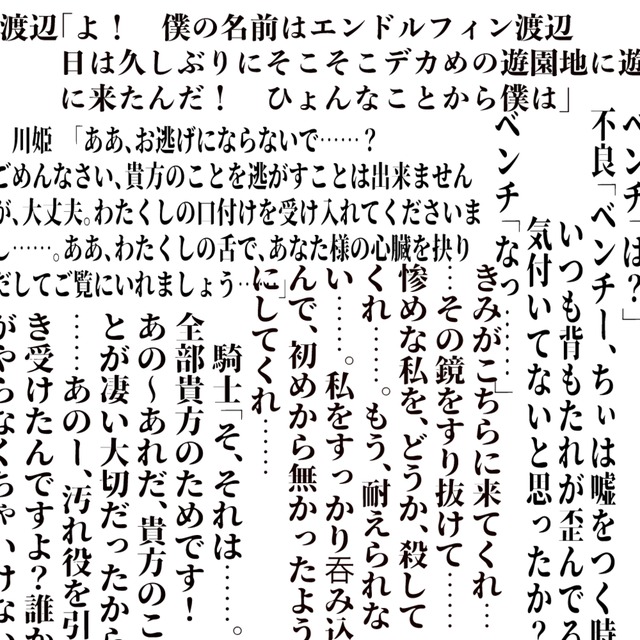 渡辺「よ！　僕の名前はエンドルフィン渡辺
日は久しぶりにそこそこデカめの遊園地に遊
に来たんだ！　ひょんなことから僕は」
川姫　「ああ、お逃げにならないで……？
ごめんなさい、貴方のことを逃がすことは出来ません
が、大丈夫。わたくしの口付けを受け入れてくださいま
し……。ああ、わたくしの舌で、あなた様の心臓を抉り
だしてご覧にいれましょう……」
ベンチ「は？」
不良「ベンチー、ちぃは嘘をつく時
いつも背もたれが歪んでる
気付いてないと思ったか？
ベンチ「なっ……」
きみがこちらに来てくれ…
…その鏡をすり抜けて……
惨めな私を、どうか、殺して
くれ……。もう、耐えられな
い……。私をすっかり呑み込
んで、初めから無かったよう
にしてくれ……
騎士「そ、それは……。
全部貴方のためです！
あの～あれだ、貴方のこ
とが凄い大切だったから
……あのー、汚れ役を引
き受けたんですよ？誰か
がやらなくちゃいけない